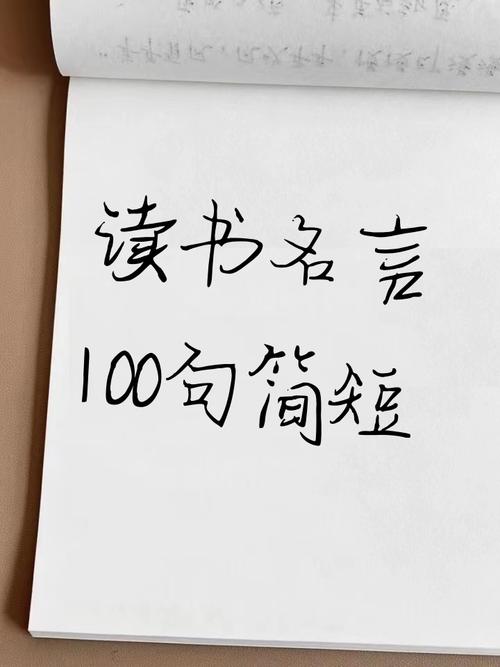 读书名言
100句简短